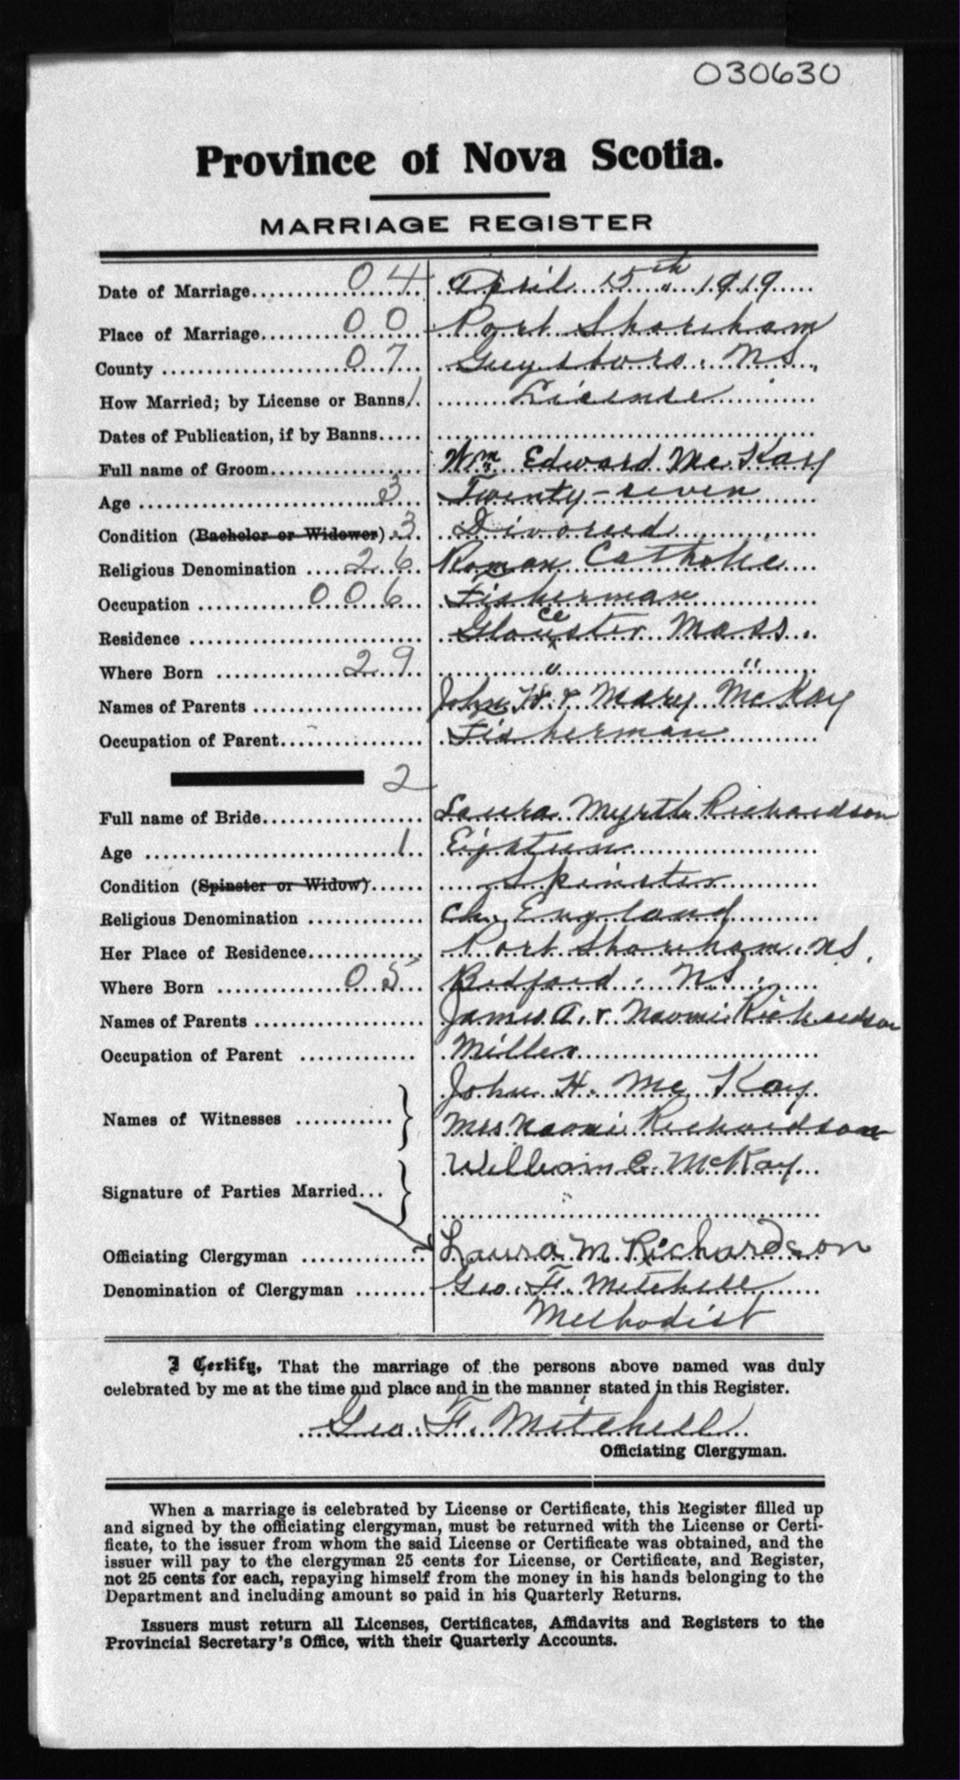 030630
Province of Nova Scotia.
MARRIAGE REGISTER
Date of Marriage 04 April 15th 1919
Place of Marriage 00 Port Shoreham
County 07 Guysboro. NS.
How Married; by License or Banns 1 License
Dates of Publication, if by Banns
Full name of Groom Wm. Edward McKay
Age 3 Twenty-seven
Condition (Bachelor or Widower) 3 Divorced
Religious Denomination 26 Roman Catholic
Occupation 006 Fisherman
Residence Gloucester Mass.
Where Born 29 " "
Names of Parents John H. & Mary McKay
Occupation of Parent Fisherman
2
Full name of Bride Laura Myrtle Richardson
Age 1 Eighteen
Condition (Spinster or Widow) Spinster
Religious Denomination Ch. England
Her Place of Residence Port Shoreham. NS.
Where Born 05 Bedford. NS.
Names of Parents James A. & Naomi Richardson
Occupation of Parent Miller
John H. McKay
Names of Witnesses } Mrs Naomi Richardson
William E. McKay
Signature of Parties Married... }
Officiating Clergyman Laura M Richardson
Denomination of Clergyman Geo. F. Mitchell
Methodist
I Certify, That the marriage of the persons above named was duly
celebrated by me at the time and place and in the manner stated in this Register.
Geo. F. Mitchell
Officiating Clergyman.
When a marriage is celebrated by License or Certificate, this Register filled up
and signed by the officiating clergyman, must be returned with the License or Certi-
ficate, to the issuer from whom the said License or Certificate was obtained, and the
issuer will pay to the clergyman 25 cents for License, or Certificate, and Register,
not 25 cents for each, repaying himself from the money in his hands belonging to the
Department and including amount so paid in his Quarterly Returns.
Issuers must return all Licenses, Certificates, Affidavits and Registers to the
Provincial Secretary's Office, with their Quarterly Accounts.